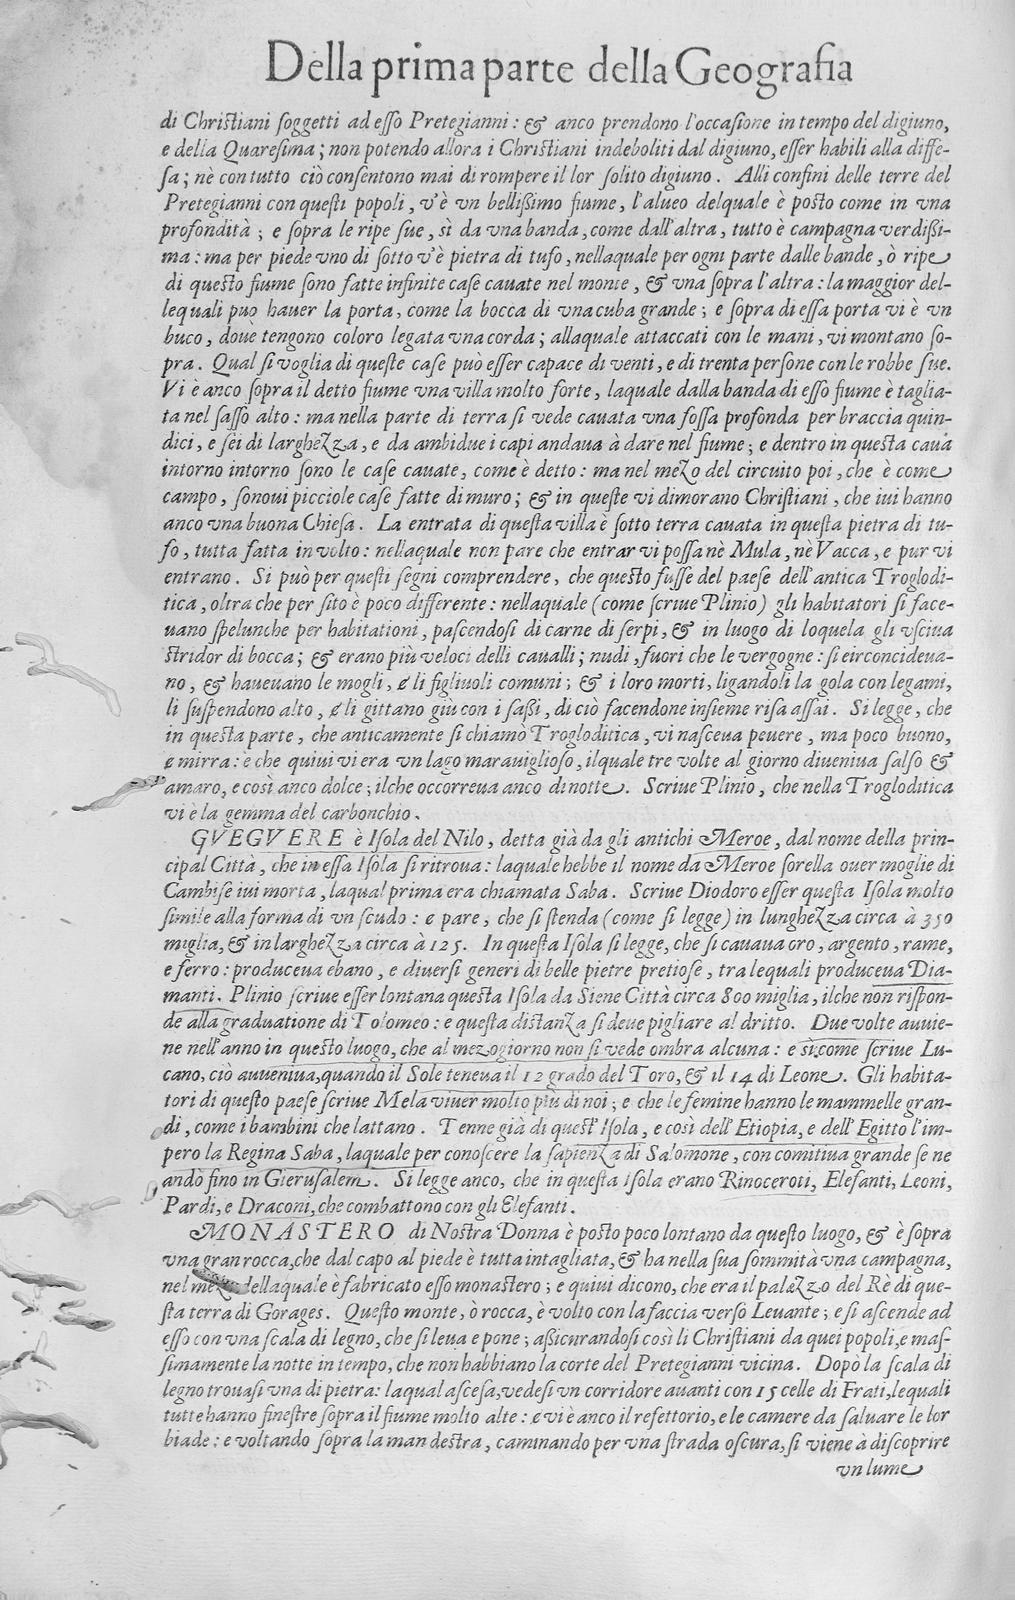 Della prima parte della Geografia
di Chriſtiani ſoggetti ad eſſo Pretegianni: & anco prendono l'occaſione in tempo del digiuno,
e della Quareſima; non potendo allora i Chriſtiani indeboliti dal digiuno, eſſer habili alla diffe-
ſa; nè con tutto ciò conſentono mai di rompere il lor ſolito digiuno. Alli confini delle terre del
Pretegianni con queſti popoli, v'è vn belliſſimo fiume, l'alueo delquale è poſto come in vna
profondità; e ſopra le ripe ſue, sì da vna banda, come dall'altra, tutto è campagna verdiſſi-
ma: ma per piede vno di ſotto v'è pietra di tufo, nellaquale per ogni parte dalle bande, ò ripe
di queſto fiume ſono fatte infinite caſe cauate nel monte, & vna ſopra l'altra: la maggior del-
lequali puo hauer la porta, come la bocca di vna cuba grande; e ſopra di eſſa porta vi è vn
buco, doue tengono coloro legata vna corda; allaquale attaccati con le mani, vi montano ſo-
pra. Qual ſi voglia di queſte caſe può eſſer capace di venti, e di trenta perſone con le robbe ſue.
Vi è anco ſopra il detto fiume vna villa molto forte, laquale dalla banda di eſſo fiume è taglia-
ta nel ſaſſo alto: ma nella parte di terra ſi vede cauata vna foſſa profonda per braccia quin-
dici, e ſei di larghezza, e da ambidue i capi andaua à dare nel fiume; e dentro in queſta caua
intorno intorno ſono le caſe cauate, come è detto: ma nel mezo del circuito poi, che è come
campo, ſonoui picciole caſe fatte di muro; & in queſte vi dimorano Chriſtiani, che iui hanno
anco vna buona Chieſa. La entrata di queſta villa è ſotto terra cauata in queſta pietra di tu-
fo, tutta fatta in volto: nellaquale non pare che entrar vi poſſa nè Mula, nè Vacca, e pur vi
entrano. Si può per queſti ſegni comprendere, che queſto fuſſe del paeſe dell'antica Troglodi-
tica, oltra che per ſito è poco differente: nellaquale (come ſcriue Plinio) gli habitatori ſi face-
uano ſpelunche per habitationi, paſcendoſi di carne di ſerpi, & in luogo di loquela gli vſciua
ſtridor di bocca; & erano più veloci delli caualli; nudi, fuori che le vergogne: ſi circoncideua-
no, & haueuano le mogli, e li figliuoli comuni; & i loro morti, ligandoli la gola con legami,
li ſuſpendono alto, e li gittano giu con i ſaſſi, di ciò facendone inſieme riſa aſſai. Si legge, che
in queſta parte, che anticamente ſi chiamò Trogloditica, vi naſceua peuere, ma poco buono,
e mirra: e che quiui vi era vn lago marauiglioſo, ilquale tre volte al giorno diueniua ſalſo &
amaro, e così anco dolce; ilche occorreua anco di notte. Scriue Plinio, che nella Trogloditica
vi è la gemma del carbonchio.
GVEGVERE è Iſola del Nilo, detta già da gli antichi Meroe, dal nome della prin-
cipal Città, che in eſſa Iſola ſi ritroua: laquale hebbe il nome da Meroe ſorella ouer moglie di
Cambiſe iui morta, laqual prima era chiamata Saba. Scriue Diodoro eſſer queſta Iſola molto
ſimile alla forma di vn ſcudo: e pare, che ſi ſtenda (come ſi legge) in lunghezza circa à 350
miglia, & in larghezza circa à 125. In queſta Iſola ſi legge, che ſi cauaua oro, argento, rame,
e ferro: produceua ebano, e diuerſi generi di belle pietre pretioſe, tra lequali produceua Dia-
manti. Plinio ſcriue eſſer lontana queſta Iſola da Siene Città circa 800 miglia, ilche non riſpon-
de alla graduatione di Tolomeo: e queſta diſtanza ſi deue pigliare al dritto. Due volte auuie-
ne nell'anno in queſto luogo, che al mezogiorno non ſi vede ombra alcuna: e sì come ſcriue Lu-
cano, ciò auueniua, quando il Sole teneua il 12 grado del Toro, & il 14 di Leone. Gli habita-
tori di queſto paeſe ſcriue Mela viuer molto più di noi; e che le femine hanno le mammelle gran-
di, come i bambini che lattano. Tenne già di queſt'Iſola, e così dell'Etiopia, e dell'Egitto l'im-
pero la Regina Saba, laquale per conoſcere la ſapienza di Salomone, con comitiua grande ſe ne
andò fino in Gieruſalem. Si legge anco, che in queſta Iſola erano Rinoceroti, Elefanti, Leoni,
Pardi, e Draconi, che combattono con gli Elefanti.
MONASTERO di Noſtra Donna è poſto poco lontano da queſto luogo, & è ſopra
vna gran rocca, che dal capo al piede è tutta intagliata, & ha nella ſua ſommità vna campagna,
nel mezo dellaquale è fabricato eſſo monaſtero; e quiui dicono, che era il palazzo del Rè di que-
ſta terra di Gorages. Queſto monte, ò rocca, è volto con la faccia verſo Leuante; e ſi aſcende ad
eſſo con vna ſcala di legno, che ſi leua e pone; aſſicurandoſi così li Chriſtiani da quei popoli, e maſ-
ſimamente la notte in tempo, che non habbiano la corte del Pretegianni vicina. Dopò la ſcala di
legno trouaſi vna di pietra: laqual aſceſa, vedeſi vn corridore auanti con 15 celle di Frati, lequali
tutte hanno fineſtre ſopra il fiume molto alte: e vi è anco il refettorio, e le camere da ſaluare le lor
biade: e voltando ſopra la man deſtra, caminando per vna ſtrada oſcura, ſi viene à diſcoprire
vn lume